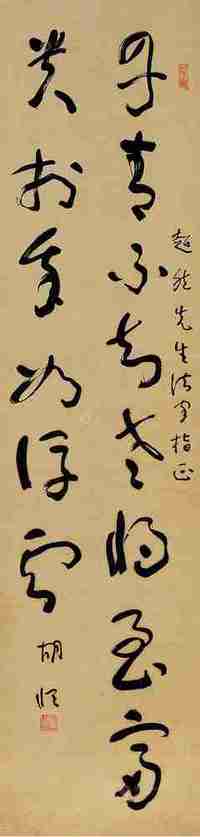 丹青不知老將至富
超然先生法家指正
貴於我如浮雲
胡